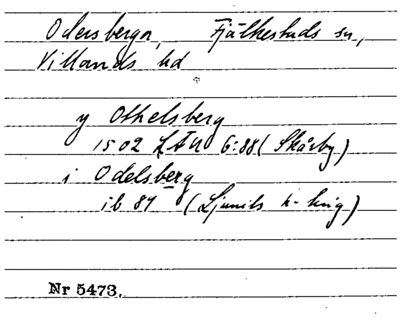 Odersberga, Fjälkestads sn,
Villands hd
y Othelsberg
1502 LÄU 6:88 (Skårby)
i Odelsberg
ib 89 (Ljunits h-ting)
Nr 5473.